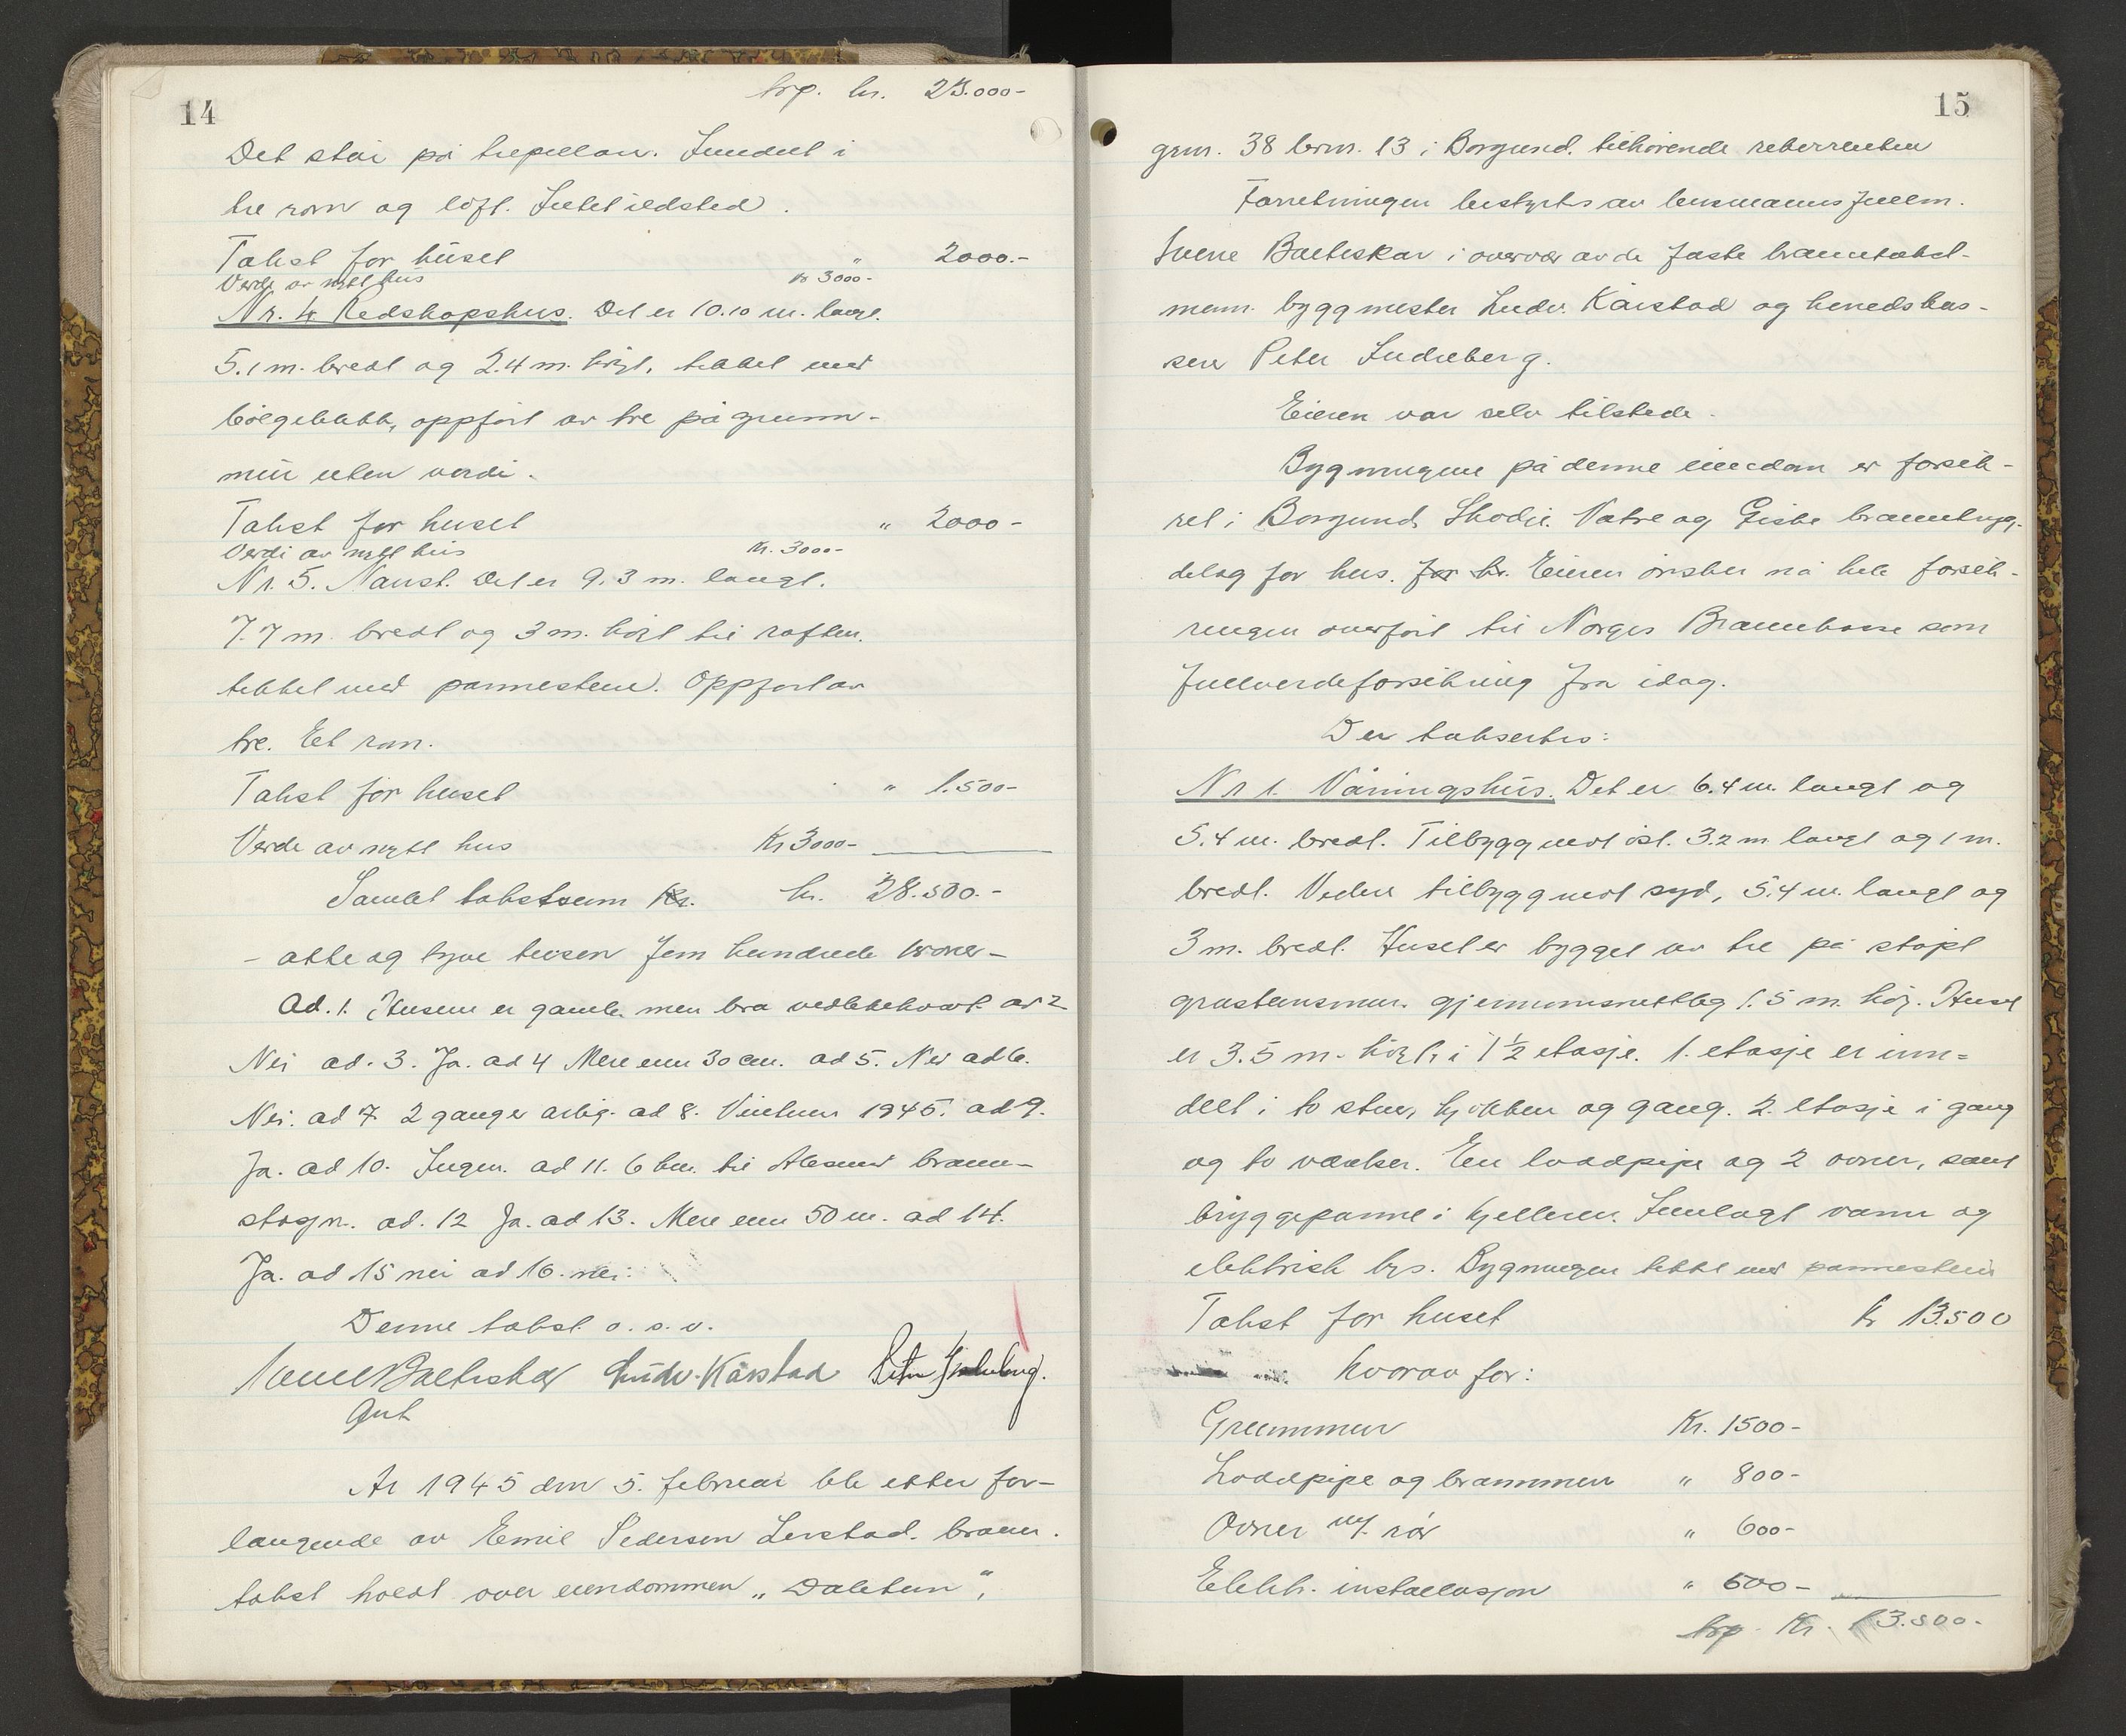 14
trp. kr. 23.000-
Det står på trepellar. Inndelt i
tre rom og loft. Intet ildsted.
Takst for huset " 2000.-
Verde av nytt hus kr 3000-
Nr. 4 Redskapshus. Det er 10.10 m. langt.
5.1 m. bredt og 2.4 m. høgt, tekket med
bølgeblekk, oppført av tre på grunn-
mur uten verdi.
Takst for huset " 2000-
Verdi av nytt hus Kr. 3000-
Nr. 5. Naust. Det er 9.3 m. langt.
7.7 m. bredt og 3 m. høgt til raften.
tekket med pannesten. Oppført av
tre. Et rom.
Takst for huset " 1.500-
Verde av nytt hus Kr 3000-
Samlet takstsum Kr. kr. 28.500.-
- åtte og tyve tusen fem hundrede kroner-
Ad. 1. Husene er gamle men bra vedlikeholdt ad 2
Nei ad. 3. Ja. ad 4 Mere enn 30 cm. ad 5. Nei ad 6.
Nei. ad 7. 2 ganger årlig. ad 8. Vinteren 1945. ad 9.
Ja. ad 10. Ingen. ad 11. 6 km. til Ålesund brann-
stasjon. ad. 12 Ja. ad 13. Mere enn 50 m. ad 14.
Ja. ad 15 nei ad 16. nei.
Denne takst o. s. v.
Ludv. Kårstad Peter Indreberg.
År 1945 den 5. februar ble etter for-
langende av Emil Pedersen Lerstad. brann.
takst holdt over eiendommen „Daletun",
15
gnr. 38 brnr. 13 i Borgund. tilhørende rekvirenten
Forretningen bestyrtes av lensmannsfullm.
Sverre Bakteskar i overvær av de faste branntakst-
menn. byggmester Ludv. Kårstad og herredskas-
serer Peter Indreberg.
Eieren var selv tilstede.
Bygningene på denne eiendom er forsik-
ret i Borgund, Skodje. Vatne og Giske branntryg-
delag for hus. for kr. Eieren ønsker nå hele forsik-
ringen overført til Norges Brannkasse som
fullverdeforsikring fra idag.
Der taksertes:
Nr 1. Våningshus. Det er 6.4 m. langt og
5.4 m. bredt. Tilbygg mot øst. 3.2 m langt og 1 m.
bredt. Videre tilbygg mot syd, 5.4 m. langt og
3 m. bredt. Huset er bygget av tre på støpt
gråstensmur. gjennomsnittlig 1.5 m. høg. Huset
er 3.5 m. høgt i 1 1/2 etasje. 1. etasje er inn=
delt i to stuer, kjøkken og gang. 2. etasje i gang
og to værelser. En loddpipe og 2 ovner, samt
bryggepanne i kjelleren. Innlagt vann og
elektrisk lys. Bygningen tekket med pannestein
Takst for huset kr 13.500
hvorav for:
Grunnmur Kr. 1500-
Loddpipe og brannmur " 800-
Ovner m/ rør " 600-
Elektr. installasjon " 500-
trp. Kr. 13.500-